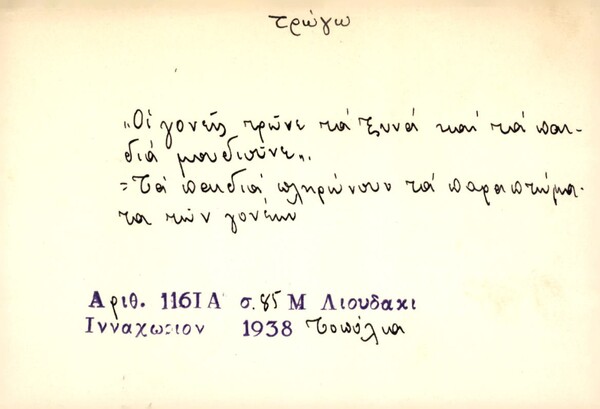 τρώγω
„Οἱ γονεῖς τρῶνε τά ξυνά καί τά παι-
διά μουδιοῦνε".
=Τά παιδιά πληρώνουν τά παραπτώμα-
τα τῶν γονέων
Αριθ. 1161Α σ. 85 Μ Λιουδακι
Ινναχωριον 1938 Τοπόλια